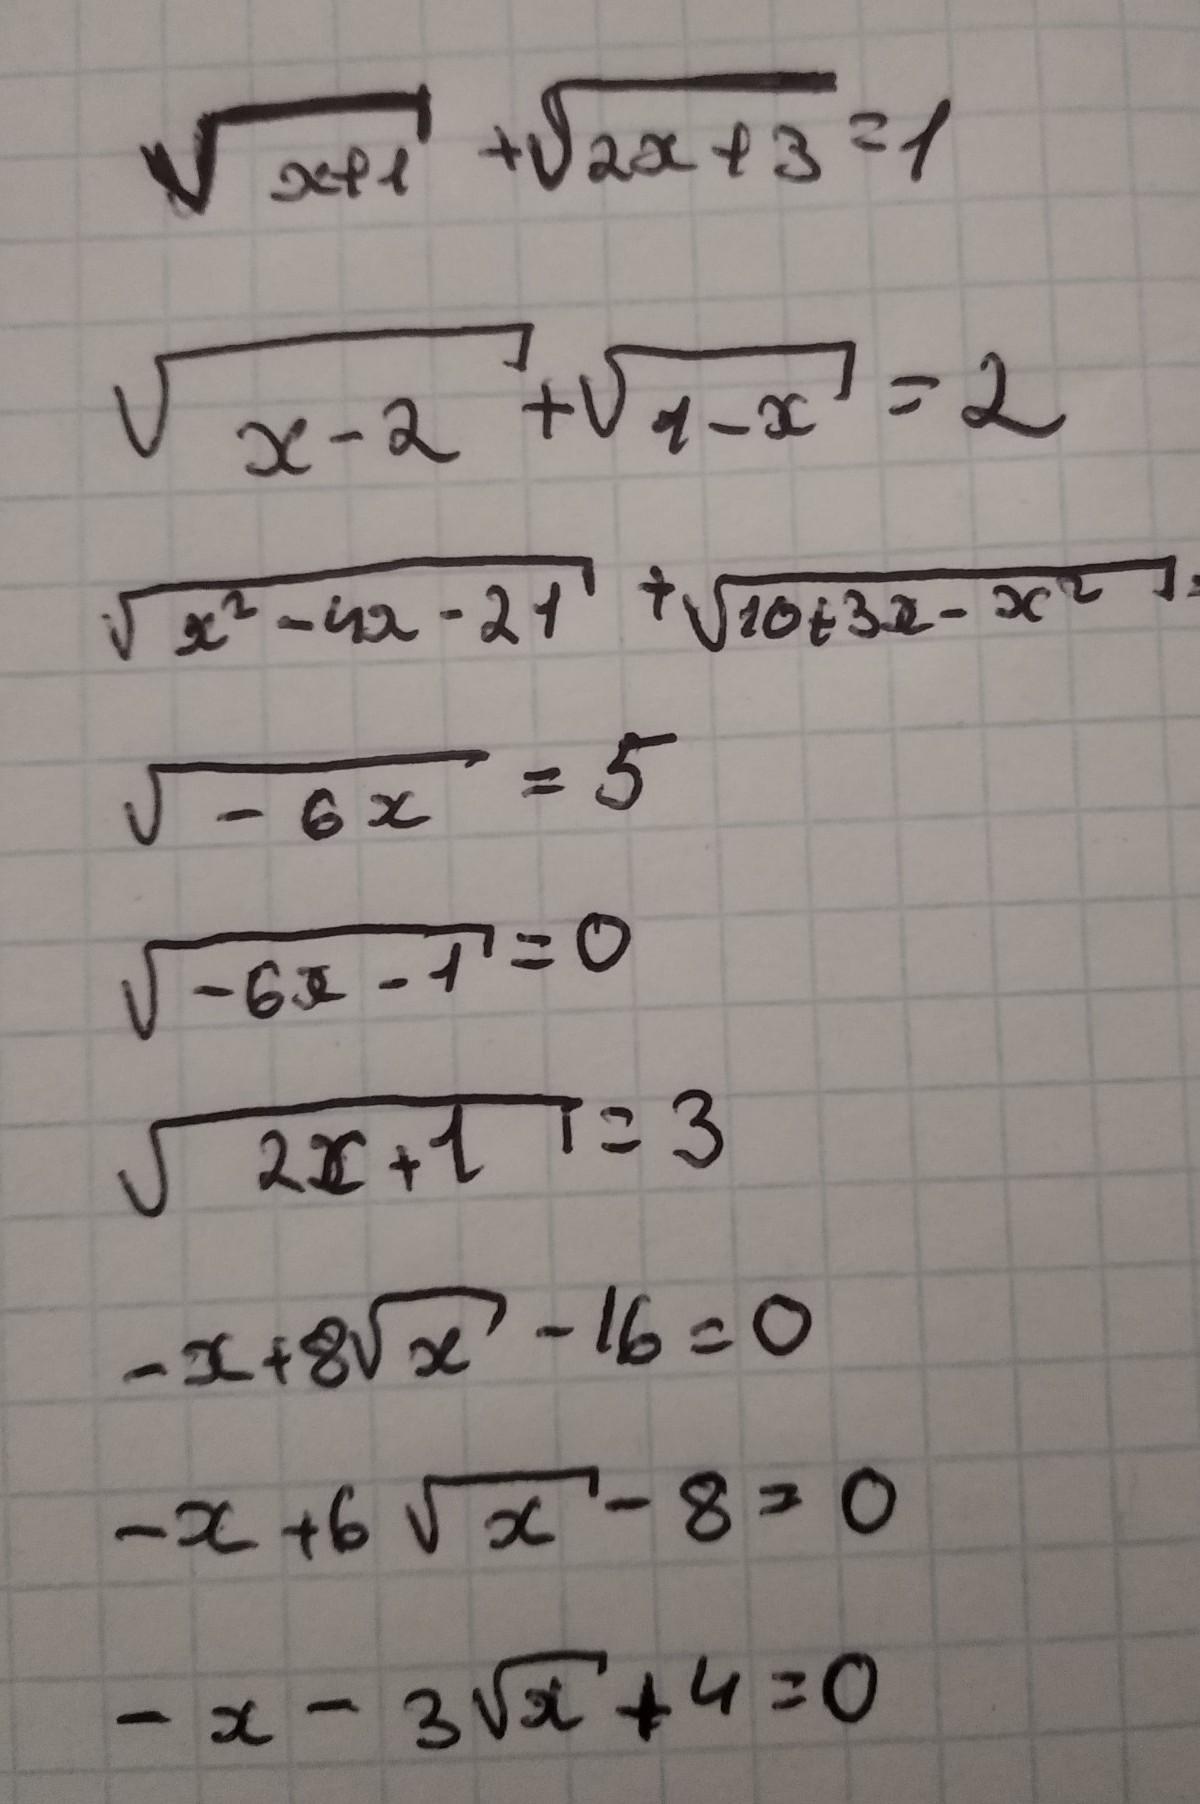 √(x+1) + √(2x+3) = 1
√(x-2) + √(1-x) = 2
√(x²-4x-21) + √(10+3x-x²) =
√(-6x) = 5
√(-6x-1) = 0
√(2x+1) = 3
-x+8√x - 16 = 0
-x+6√x - 8 = 0
-x - 3√x + 4 = 0